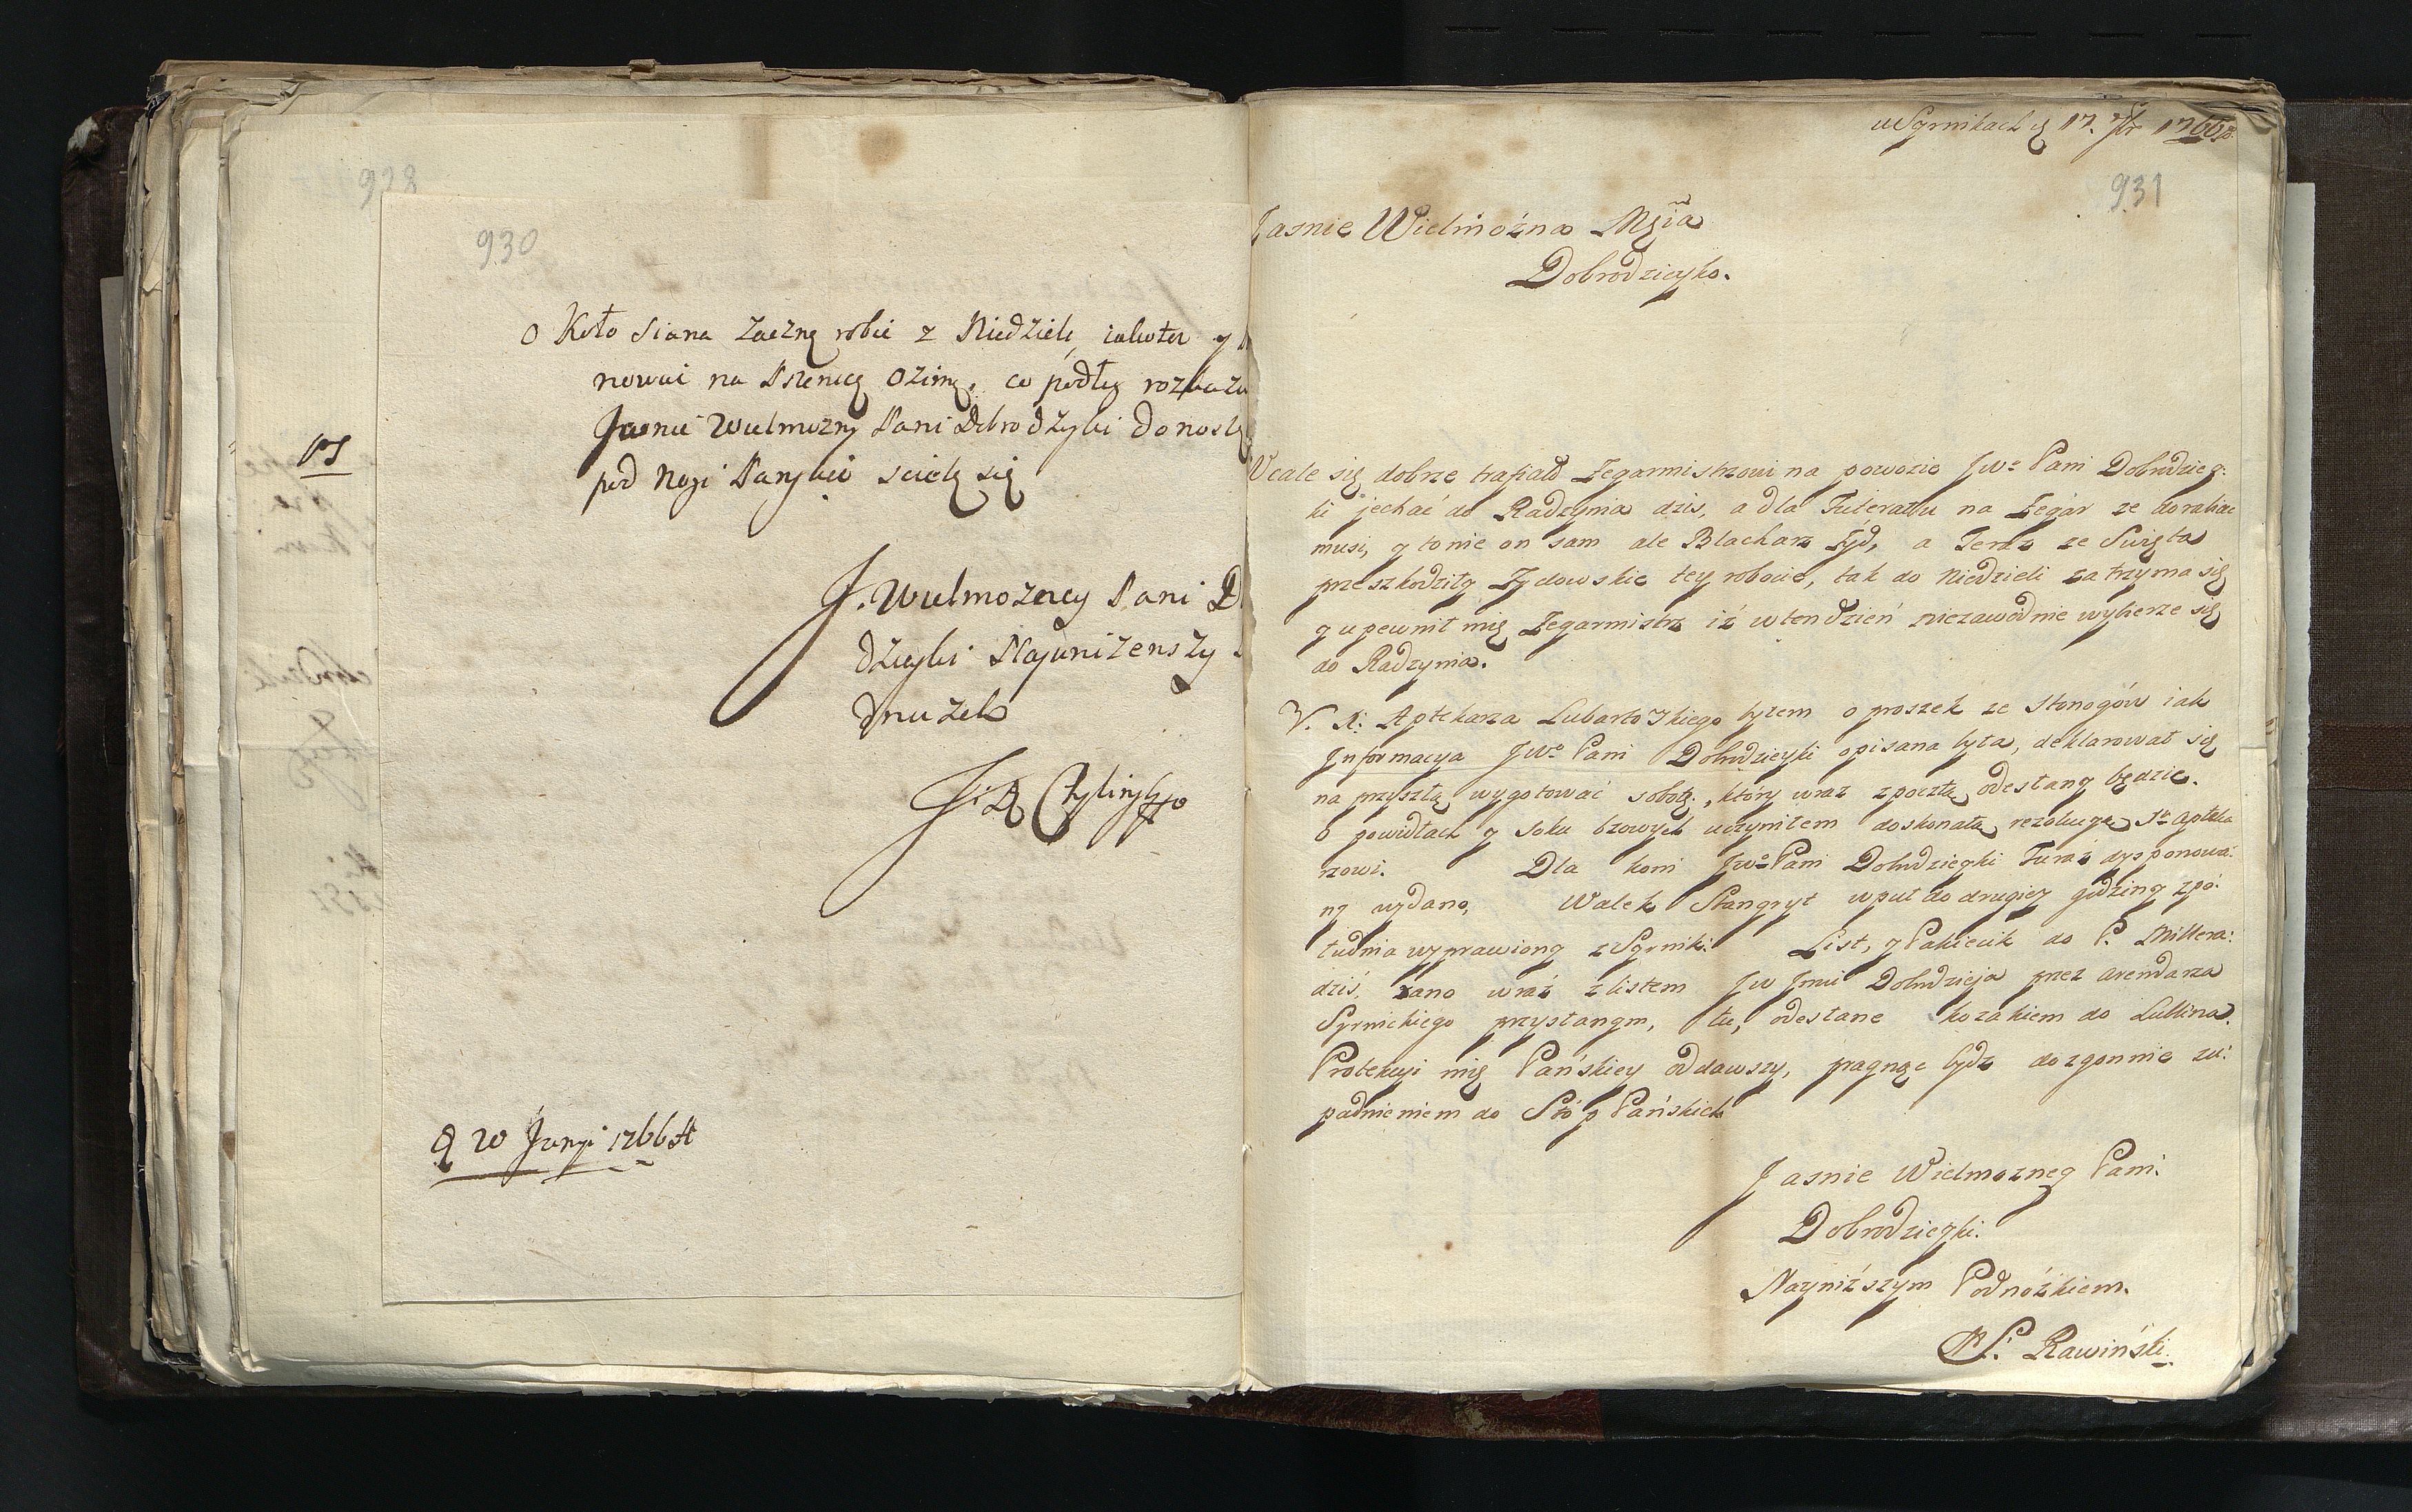 928
930
PS
O Koło Siana zaczną robić z Niedziele, iakoteż y
nować na Pszenicę Ozimę, co podług rozkazu
Jasnie Wielmożny Pani Dobrodzyki donoszę
pod Nogi Panskie scielę się
J. Wielmożney Pani D
dzieyki Nayuniżenszy
dnużek
J: A
d 20 Junyi 1766 R
w Syrnikach d 17. 7br 1766 R.
931
Jasnie Wielmożna Mścia
Dobrodzieyko.
Wcale się dobrze trafiało Zegarmistrzowi na powozie JWo Pani Dobrodziey:
ki jechać do Radzynia dzis, a dla Futerału na Zegar ze dorabiac
musi, y to nie on sam ale Blacharz Żyd, a Teraz ze Swięta
przeszkodziły Zydowskie tey robocie, tak do Niedzieli zatrzyma się
y upewnił mię Zegarmistrz iż w ten dzień niezawodnie wybierze się
do Radzynia.
U. A: Aptekarza Lubartoskiego byłem o proszek ze Stonogów iak
Informacya JWo Pani Dobrodzieyki opisana była, deklarował się
na przyszłą wygotować sobotę, który wraz z pocztą odesłany będzie.
O powidłach y soku bzowych uczyniłem doskonałą rezolucyą Po Apteka
rzowi. Dla koni JWo Pani Dobrodzieyki Furaż dysponowa:
ny wydano, Walek Stangryt w puł do drugiey godziny z po:
łudnia wyprawiony z Syrnik: List, y Pakiecik do P. Millera:
dziś, rano wraz z listem JW Jmci Dobrodzieja przez arendarza
Syrnickiego przysłanym, tu, odesłane kozakiem do Lublina.
Protekcyi mię Pańskiey oddawszy, pragnąc bydz dozgonnie zu:
padnieniem do Stóp Pańskich
Jasnie Wielmozney Pani:
Dobrodzieyki.
Nayniższym Podnóżkiem.
P. Rawiński.